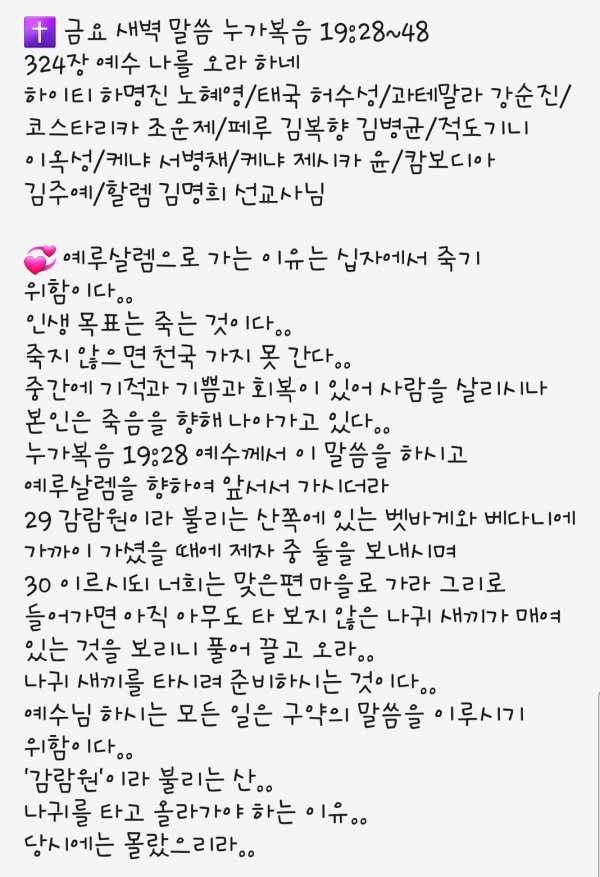 ✝️ 금요 새벽 말씀 누가복음 19:28~48
324장 예수 나를 오라 하네
하이티 하명진 노혜영/태국 허수성/과테말라 강순진/
코스타리카 조운제/페루 김복향 김병균/적도기니
이옥성/케냐 서병채/케냐 제시카 윤/캄보디아
김주예/할렘 김명희 선교사님

💞 예루살렘으로 가는 이유는 십자에서 죽기
위함이다..
인생 목표는 죽는 것이다..
죽지 않으면 천국 가지 못 간다..
중간에 기적과 기쁨과 회복이 있어 사람을 살리시나
본인은 죽음을 향해 나아가고 있다..
누가복음 19:28 예수께서 이 말씀을 하시고
예루살렘을 향하여 앞서서 가시더라
29 감람원이라 불리는 산쪽에 있는 벳바게와 베다니에
가까이 가셨을 때에 제자 중 둘을 보내시며
30 이르시되 너희는 맞은편 마을로 가라 그리로
들어가면 아직 아무도 타 보지 않은 나귀 새끼가 매여
있는 것을 보리니 풀어 끌고 오라..
나귀 새끼를 타시려 준비하시는 것이다..
예수님 하시는 모든 일은 구약의 말씀을 이루시기
위함이다..
'감람원'이라 불리는 산..
나귀를 타고 올라가야 하는 이유..
당시에는 몰랐으리라..